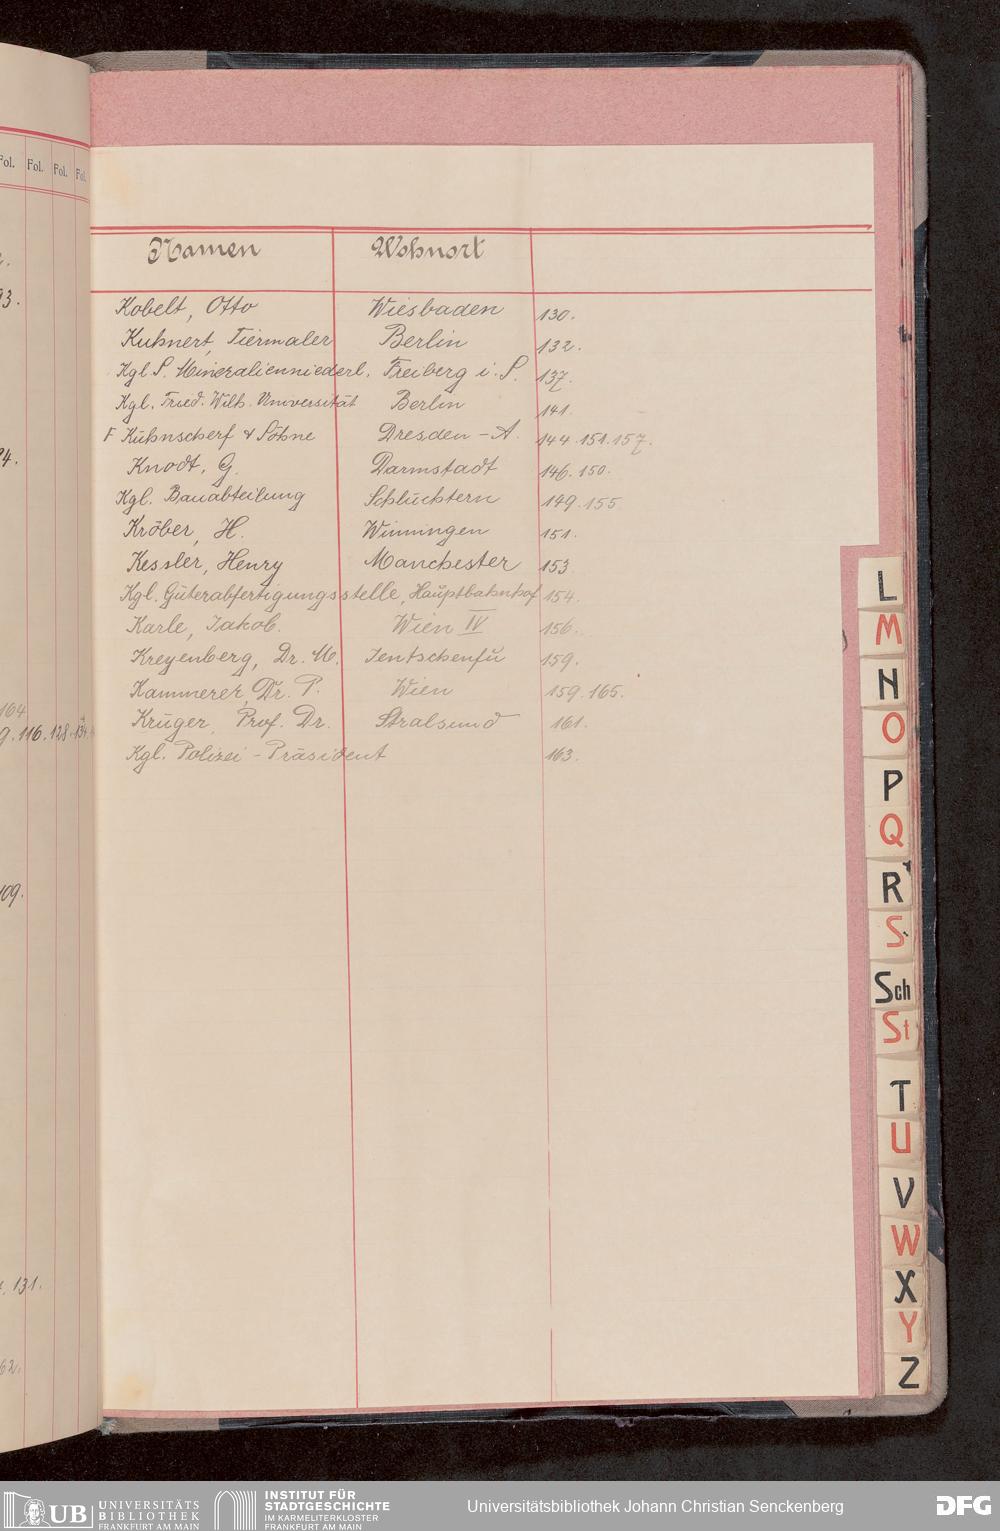 Fol. Fol. Fol. Fol.
93.
164
116. 128. 134.
109.
131.
62.
Namen Wohnort
Kobelt, Otto Wiesbaden 130.
Kuhnert, Tiermaler Berlin 132.
Kgl. S. Mineralienniederl. Freiberg i. S. 137.
Kgl. Fried. Wilh. Universität Berlin 141.
F Kühnscherf & Söhne Dresden - A. 144. 151. 157.
Knodt, G. Darmstadt 146. 150.
Kgl. Bauabteilung Schlüchtern 149. 155
Kröber, H. Winningen 151.
Kessler, Henry Manchester 153
Kgl. Güterabfertigungsstelle, Hauptbahnhof 154.
Karle, Jakob. Wien IV 156.
Kreyenberg, Dr. M. Jentschenfu 159.
Kammerer, Dr. P. Wien 159. 165.
Krüger, Prof. Dr. Stralsund 161.
Kgl. Polizei - Präsident 163.
L
M
N
O
P
Q
R
S
Sch
St
T
U
V
W
X
Y
Z
UB UNIVERSITÄTS
BIBLIOTHEK
FRANKFURT AM MAIN
INSTITUT FÜR
STADTGESCHICHTE
IM KARMELITERKLOSTER
FRANKFURT AM MAIN
Universitätsbibliothek Johann Christian Senckenberg
DFG